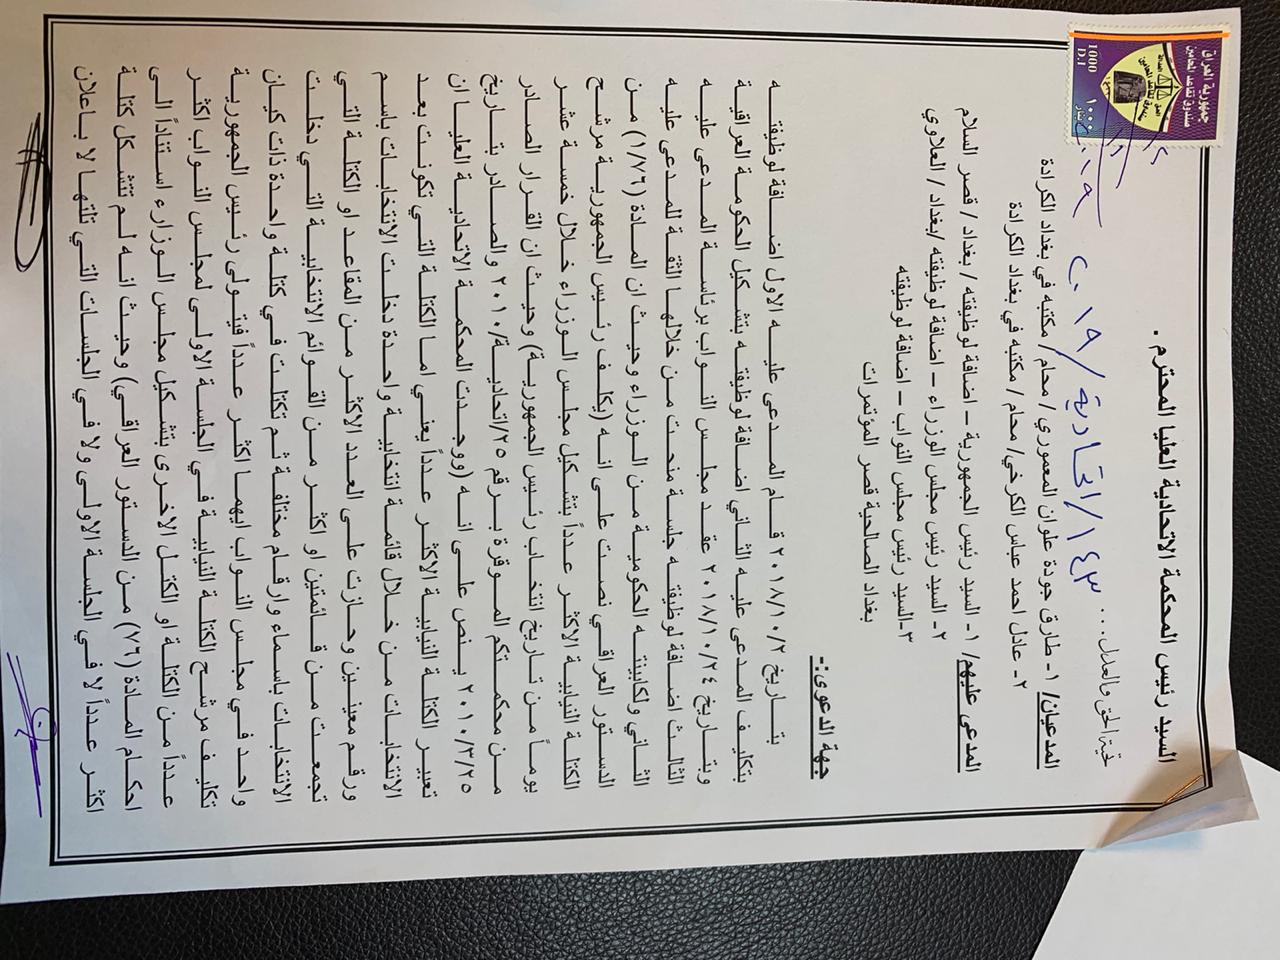 جمهورية العراق
صندوق تقاعد المحامين
1000
D.I
١٠٠٠
دينار
السيد رئيس المحكمة الاتحادية العليا المحترم .
تحية الحق والعدل ...
١٤٣/اتحادية/٢٠١٩
المدعيان/ ١- طارق جودة علوان المعموري/ محام/ مكتبه في بغداد الكرادة
٢- عادل احمد عباس الكرخي/ محام/ مكتبه في بغداد الكرادة
المدعى عليهم/ ١- السيد رئيس الجمهورية – اضافة لوظيفته / بغداد / قصر السلام
٢- السيد رئيس مجلس الوزراء – اضافة لوظيفته /بغداد / العلاوي
٣-السيد رئيس مجلس النواب – اضافة لوظيفته
بغداد الصالحية قصر المؤتمرات
جهة الدعوى:-
بتاريخ ٢٠١٨/١٠/٢ قام المدعى عليه الاول اضافة لوظيفته
بتكليف المدعى عليه الثاني اضافة لوظيفته بتشكيل الحكومة العراقية
وبتاريخ ٢٠١٨/١٠/٢٤ عقد مجلس النواب برئاسة المدعى عليه
الثالث اضافة لوظيفته جلسة منحت من خلالها الثقة للمدعى عليه
الثاني ولكابينته الحكومية من الوزراء وحيث ان المادة (١/٧٦) من
الدستور العراقي نصت على انه (يكلف رئيس الجمهورية مرشح
الكتلة النيابية الاكثر عدداً بتشكيل مجلس الوزراء خلال خمسة عشر
يوماً من تاريخ انتخاب رئيس الجمهورية) وحيث ان القرار الصادر
من محكمتكم الموقرة برقم ٢٥/اتحادية/٢٠١٠ والصادر بتاريخ
٢٠١٠/٣/٢٥ ينص على انه (ووجدت المحكمة الاتحادية العليا ان
تعبير الكتلة النيابية الاكثر عدداً يعني اما الكتلة التي تكونت بعد
الانتخابات من خلال قائمة انتخابية واحدة دخلت الانتخابات باسم
ورقم معينين وحازت على العدد الاكثر من المقاعد او الكتلة التي
تجمعت من قائمتين او اكثر من القوائم الانتخابية التي دخلت
الانتخابات باسماء وارقام مختلفة ثم تكتلت في كتلة واحدة ذات كيان
واحد في مجلس النواب ايهما اكثر عدداً فيتولى رئيس الجمهورية
تكليف مرشح الكتلة النيابية في الجلسة الاولى لمجلس النواب اكثر
عدداً من الكتلة او الكتل الاخرى بتشكيل مجلس الوزراء استناداً الى
احكام المادة (٧٦) من الدستور العراقي) وحيث انه لم تتشكل كتلة
اكثر عدداً لا في الجلسة الاولى ولا في الجلسات التي تلتها لا باعلان